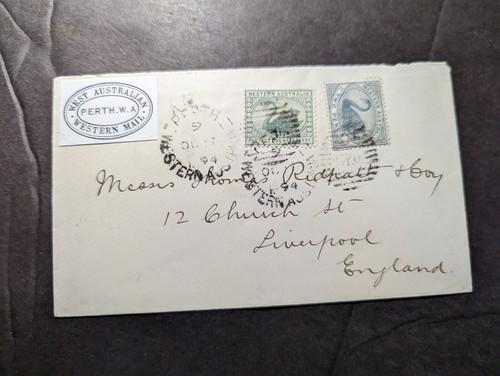 WEST AUSTRALIAN
PERTH.W.A
WESTERN MAIL
WESTERN AUSTRALIA
94
WESTERN AUS
94
Messrs Thomas Ridpath & Coy
12 Church St
Liverpool
England.